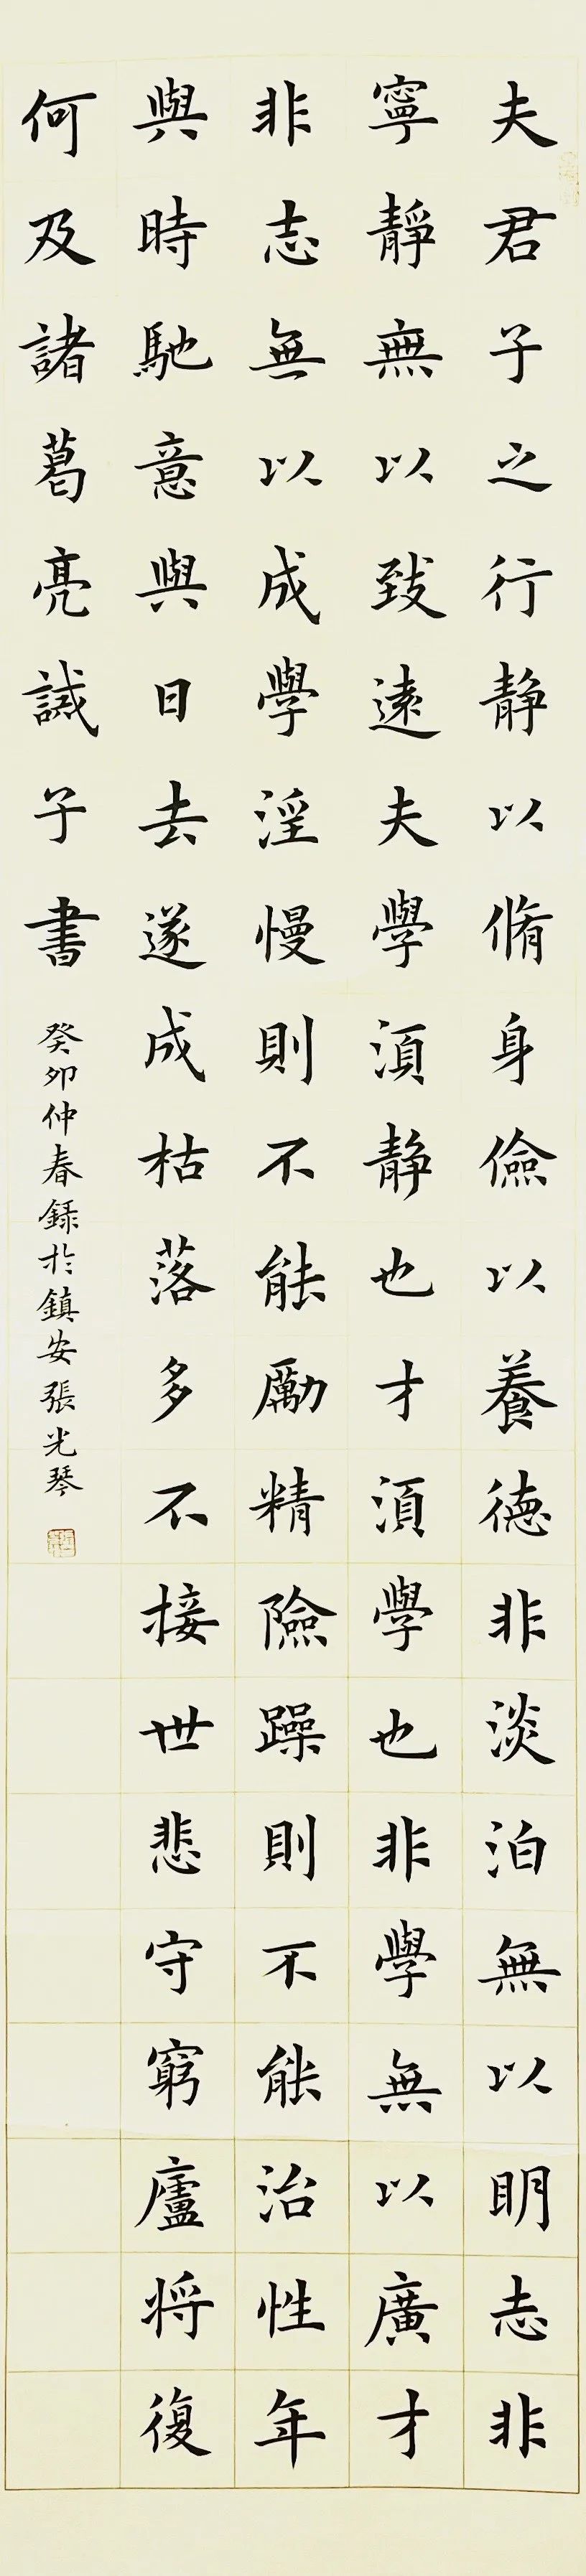 夫君子之行静以脩身儉以養德非淡泊無以明志非
寧靜無以致遠夫學湏静也才湏學也非學無以廣才
非志無以成學淫慢則不能勵精險躁則不能治性年
與時馳意與日去遂成枯落多不接世悲守窮廬將復
何及諸葛亮誡子書
癸卯仲春録於鎮安張光琴